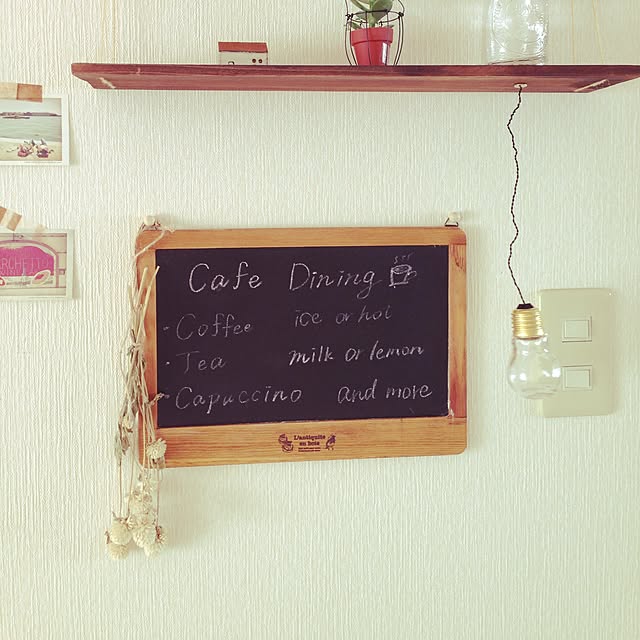 Cafe Dining
· Coffee ice or hot
· Tea milk or lemon
· Capuccino and more
L'antiquite
au bois